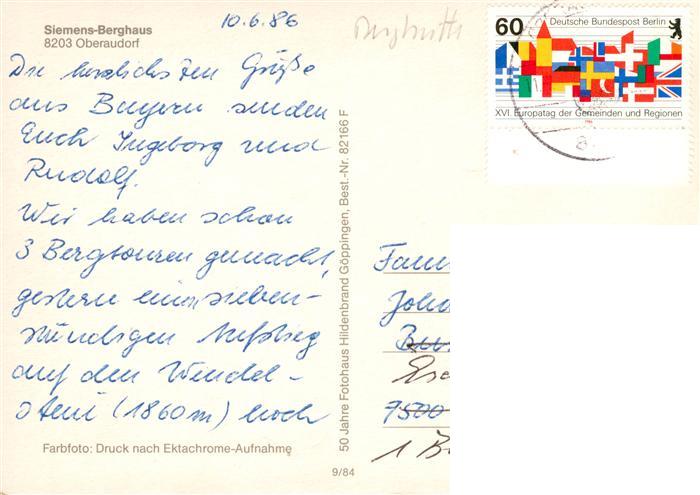 Siemens-Berghaus
8203 Oberaudorf
10.6.86
60 Deutsche Bundespost Berlin
XVI. Europatag der Gemeinden und Regionen
1986
Die herzlichsten Grüße
aus Bayern senden
Euch Ingeborg und
Rudolf.
Wir haben schon
3 Bergtouren gemacht,
gestern einen sieben-
stündigen Aufstieg
auf den Wendel-
stein (1860m) hoch
50 Jahre Fotohaus Hildenbrand Göppingen, Best.-Nr. 82166 F
Fam
Joh
7500
1 B
Farbfoto: Druck nach Ektachrome-Aufnahme
9/84